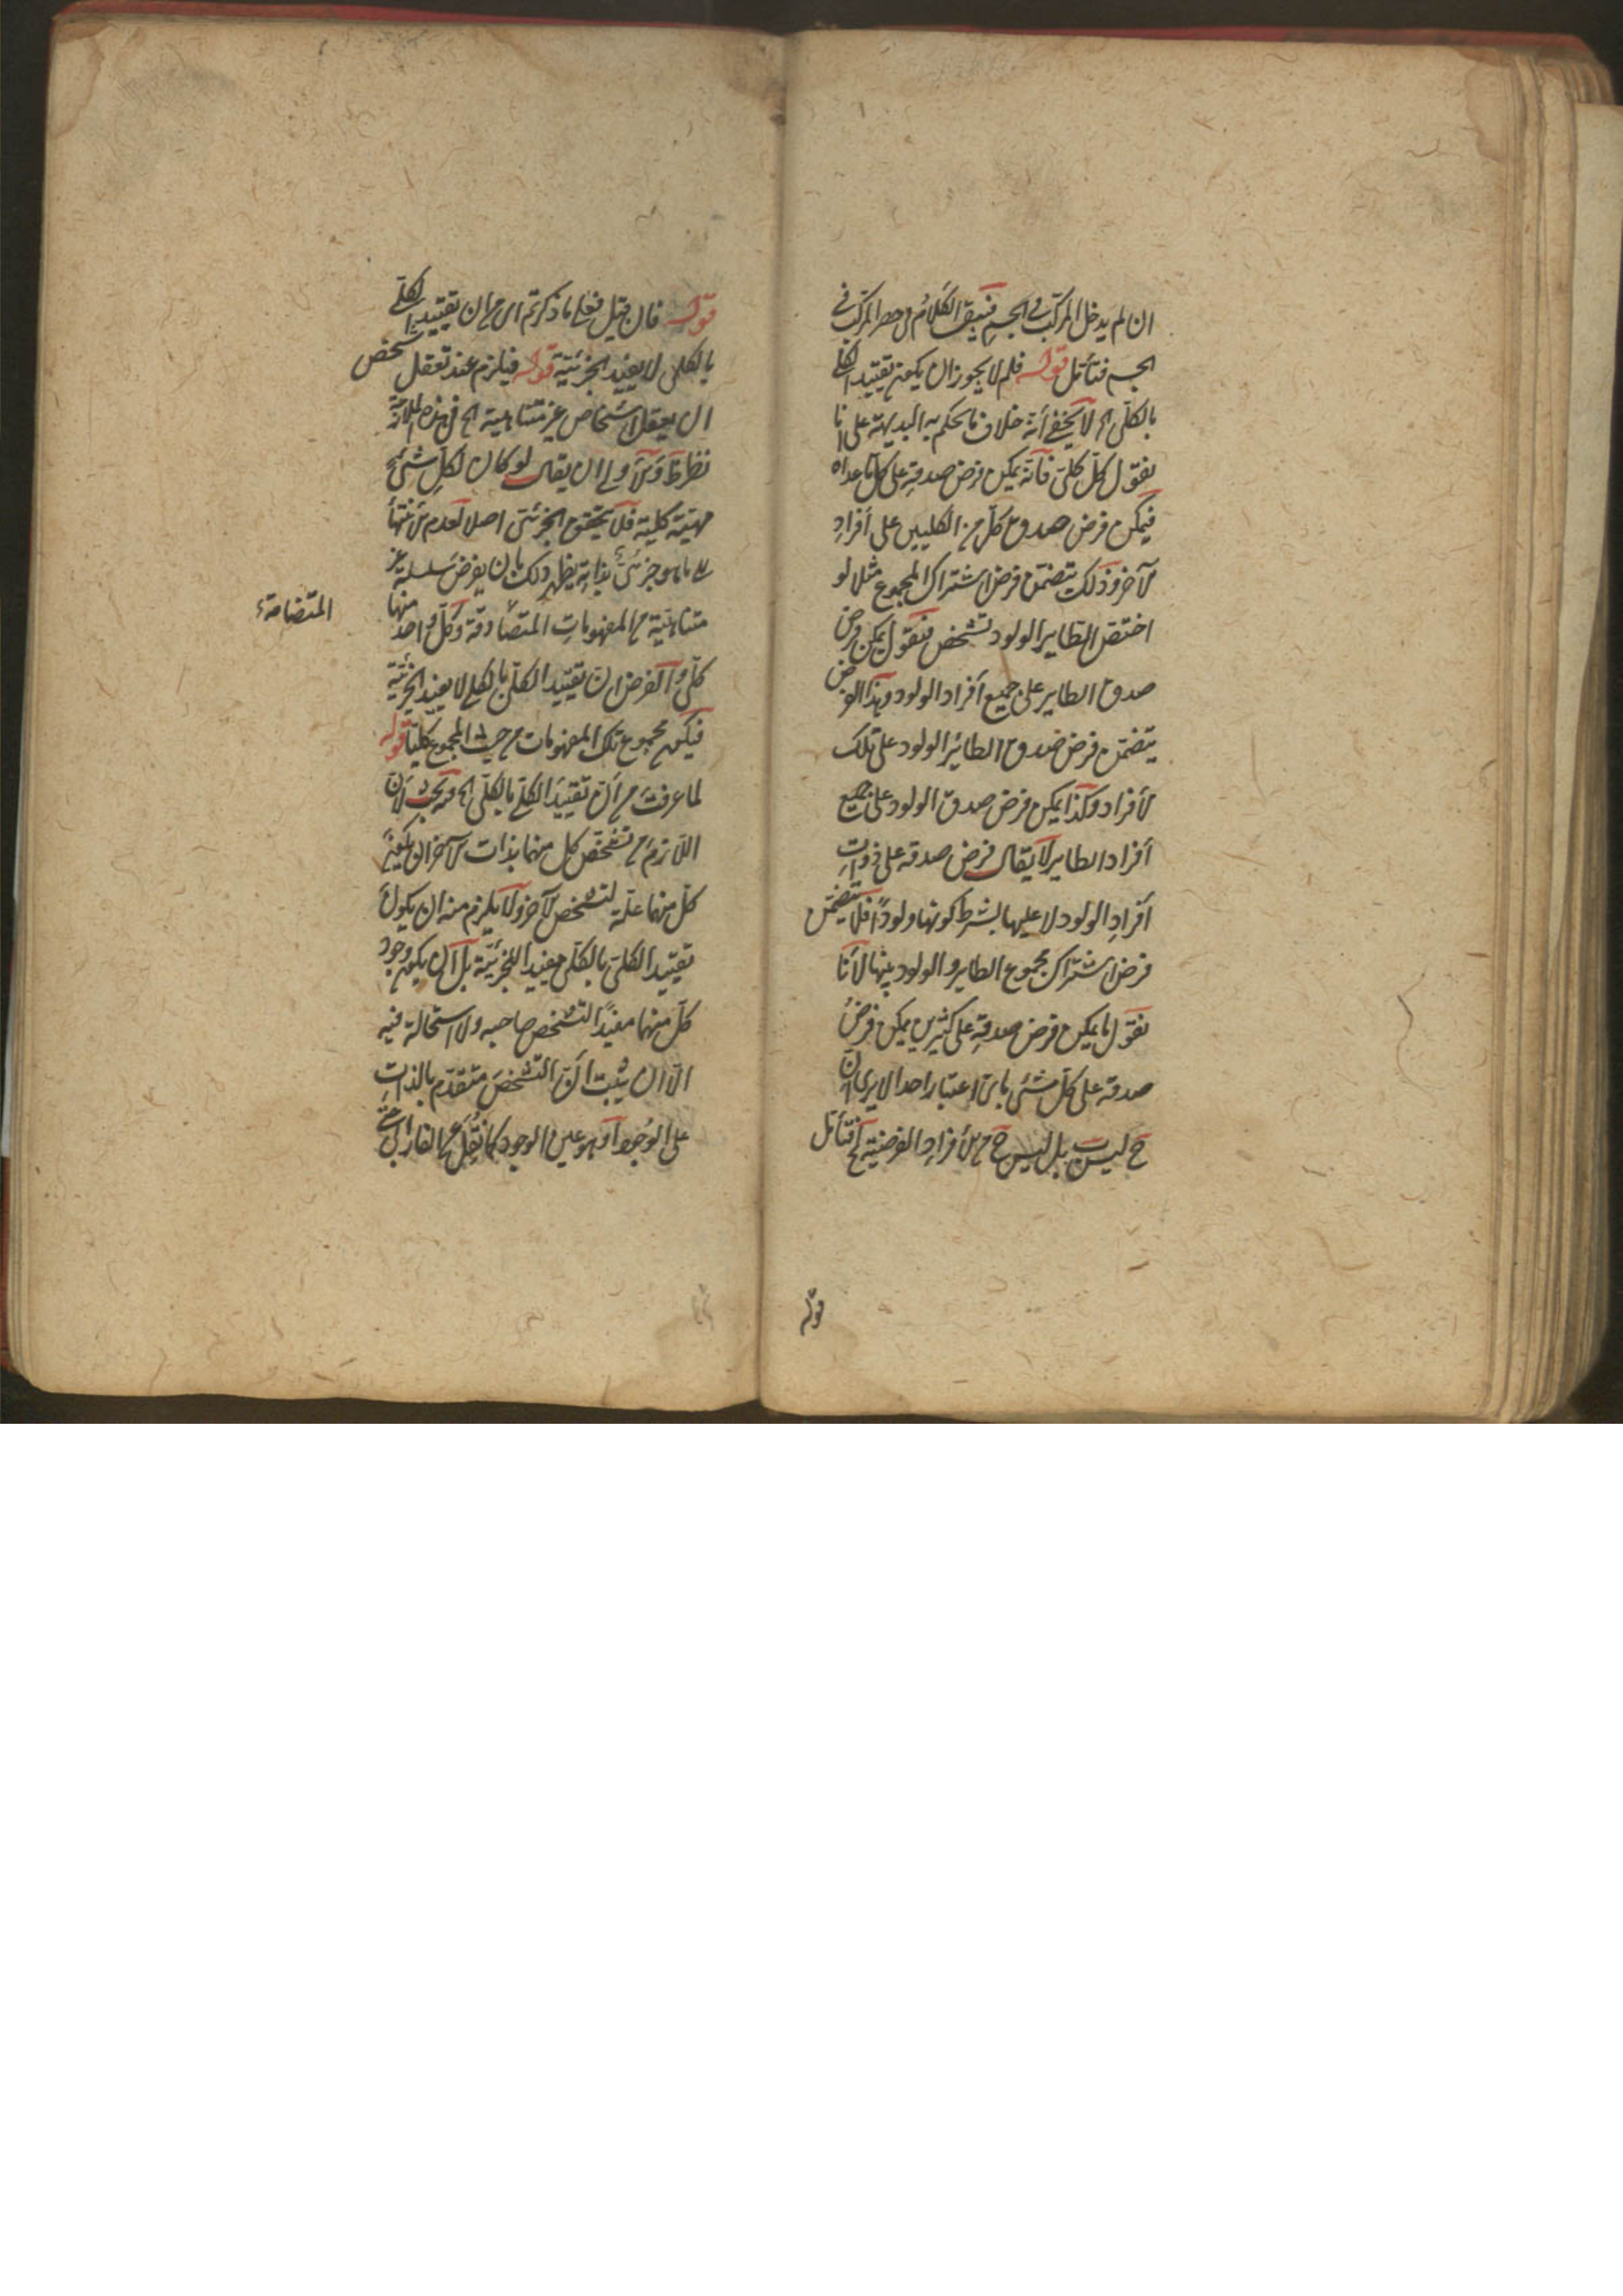 ان لم يدخل المركب في الجسم فيبقى الكلام في حصر المركب في
الجسم فتأمل قوله فلم لا يجوز ان يكون تقييد الكلي
بالكلي اه لا يخفى أنه خلاف ما يحكم به البديهة على انا
نقول كل كلي فانه يمكن فرض صدقه على كل ما عداه
فيمكن فرض صدق كل من الكليين على أفراد
الآخر وذلك يتضمن فرض اشتراك المجموع مثلا لو
اختص الطاير الولود بشخص فنقول يمكن فرض
صدق الطاير على جميع أفراد الولود وهذا الفرض
يتضمن فرض صدق الطائر الولود على تلك
الأفراد وكذا يمكن فرض صدق الولود على جميع
أفراد الطاير لا يقال فرض صدقه على ذوات
أفراد الولود لا عليها بشرط كونها ولودا فلا يتضمن
فرض اشتراك مجموع الطاير والولود بينها لأنا
نقول ما يمكن فرض صدقه على كثيرين يمكن فرض
صدقه على كل شئ باي اعتبار اخذ الا يرى ان
ح ليس بل ليس ح من الأفراد الفرضية لح فتأمل
قوله
قوله فان قيل فعلى ما ذكرتم اى من ان تقييد الكلي
بالكلي لا يفيد الجزئية قوله فيلزم عند تعقل شخص
ان يعقل اشخاص غير متناهية اه في هذه الملازمة
نظر ظ والأولى ان يقال لو كان لكل شئ
مهية كلية فلا يتحقق الجزئي اصلا لعدم الانتهاء
الى ما هو جزئي بذاته يظهر ذلك بان يفرض سلسلة غير
متناهية من المفهومات المتصادقة وكل واحد منها
المتضامة
كلي والفرض ان تقييد الكلي بالكلي لا يفيد الجزئية
فيكون مجموع تلك المفهومات من حيث المجموع كليا قوله
لما عرفت من أن تقييد الكلي بالكلي اه فيه بحث لأن
اللازم من تشخص كل منهما بذات الآخر ان يكون
كل منهما علة لتشخص الآخر ولا يلزم منه ان يكون
تقييد الكلي بالكلي مفيدا للجزئية بل ان يكون وجود
كل منهما مفيدا لتشخص صاحبه ولا استحالة فيه
الا ان يثبت أن التشخص متقدم بالذات
على الوجود أو هو عين الوجود كما نقل عن الفارابي